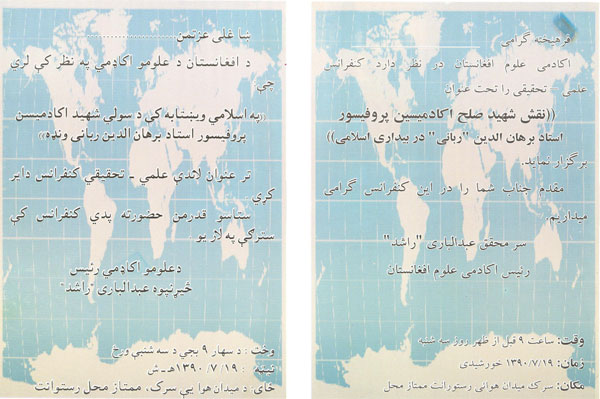 ښاغلی عزتمن ........................
د افغانستان د علومو اکاډمي په نظر کې لري
چې
«په اسلامي ویښتابه کې د سولې شهید اکاډمیسن
پروفیسور استاد برهان الدین رباني ونډه»
تر عنوان لاندې علمي ـ تحقیقي کنفرانس دایر
کړي
ستاسو قدرمن حضورته پدې کنفرانس کې
سترګې په لار یو .
دعلومو اکاډمي رئیس
څېړنپوه عبدالباري "راشد"
وخت : د سهار ۹ بجې د سه شنبې ورځ
نېټه : ۱۹ /۷ /۱۳۹۰هـ ـ ش
ځای : د میدان هوایي سرک، ممتاز محل رستوانت
فرهیخته گرامی ........................
اکادمی علوم افغانستان در نظر دارد کنفرانس
علمی – تحقیقی را تحت عنوان
((نقش شهید صلح اکادمیسین پروفیسور
استاد برهان الدین "ربانی" در بیداری اسلامی))
برگزار نماید.
مقدم جناب شما را در این کنفرانس گرامی
میداریم.
سر محقق عبدالباری "راشد"
رئیس اکادمی علوم افغانستان
وقت: ساعت ۹ قبل از ظهر روز سه شنبه
زمان: ۱۳۹۰/۷/۱۹ خورشیدی
مکان: سرک میدان هوائی رستورانت ممتاز محل